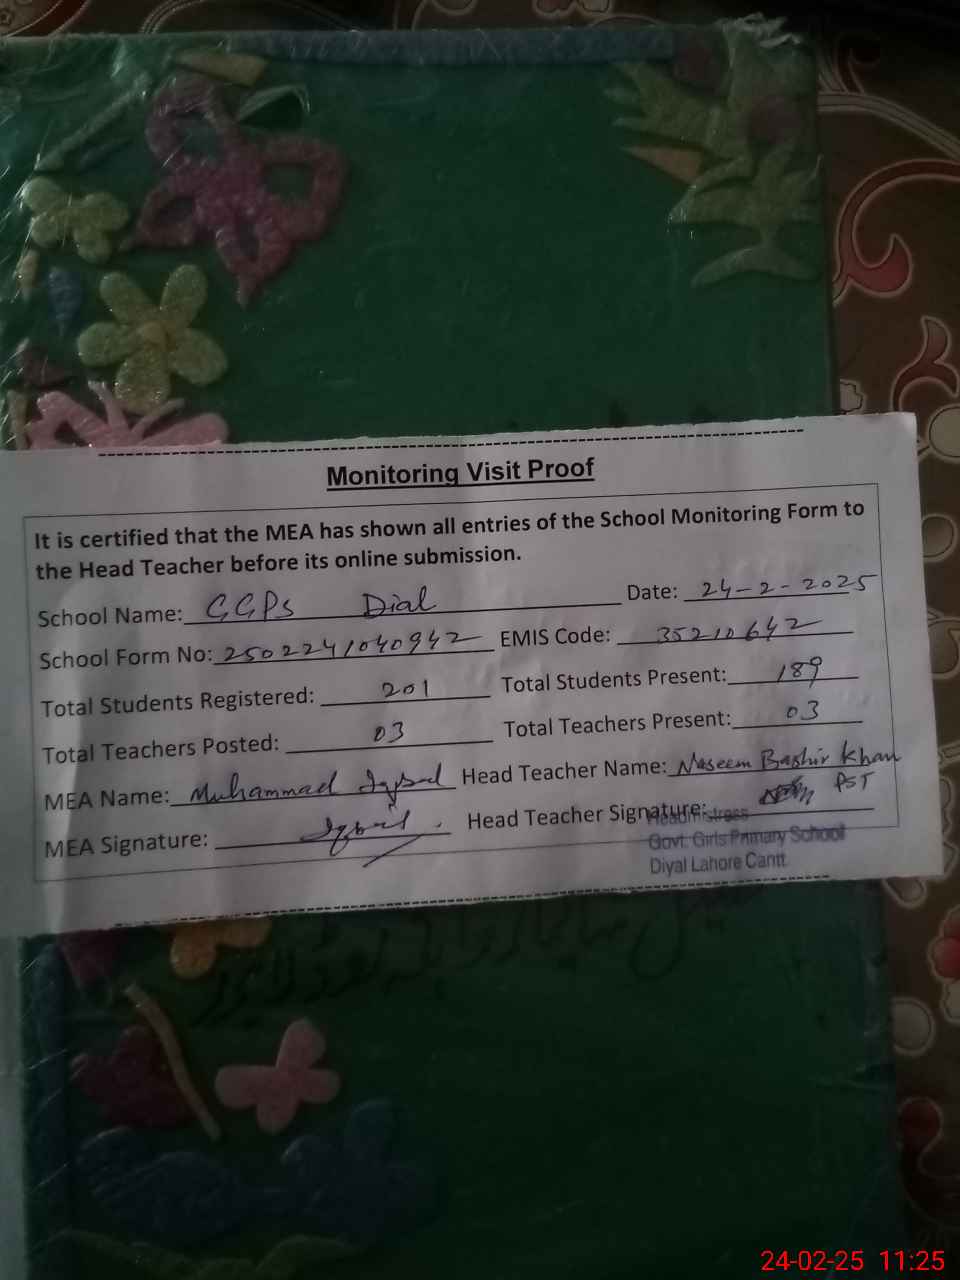 Monitoring Visit Proof
It is certified that the MEA has shown all entries of the School Monitoring Form to
the Head Teacher before its online submission.
School Name: GGPS Dial Date: 24-2-2025
School Form No: 2502241040942 EMIS Code: 35210642
Total Students Registered: 201 Total Students Present: 189
Total Teachers Posted: 03 Total Teachers Present: 03
MEA Name: Muhammad Iqbal Head Teacher Name: Naseem Bashir Khan
PST
MEA Signature: Iqbal. Head Teacher Signature:
Headmistress
Govt. Girls Primary School
Diyal Lahore Cantt
24-02-25 11:25